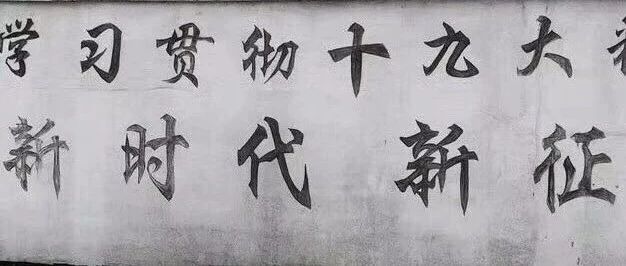 学习贯彻十九大
新时代新征